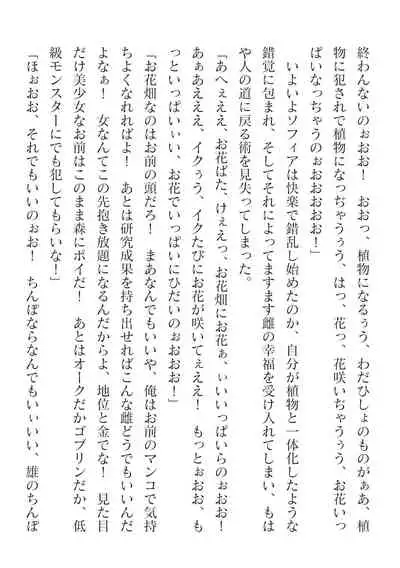 終わんないのぉおお！　おおっ、植物になるぅう、わだひしょのものがぁあ、植
物に犯されで植物になっちゃうぅう、はっ、花っ、花咲いちゃうぅう、お花いっ
ぱいなっちゃうのぉおおおおお！」
　いよいよソフィアは快楽で錯乱し始めたのか、自分が植物と一体化したような
錯覚に包まれ、そしてそれによってますます雌の幸福を受け入れてしまい、もは
や人の道に戻る術を見失ってしまった。
「あへぇええ、お花ばた、けぇえっ、お花畑にお花ぁ、いぃいいっぱいらのぉおお！
あぁあええええ、イクぅう、イクたびにお花が咲いてぇええ！　もっとぉおお、も
っといっぱいぃい、お花でいっぱいにひだいのぉおおお！」
「お花畑なのはお前の頭だろ！　まあなんでもいいや、俺はお前のマンコで気持
ちよくなれればよ！　あとは研究成果を持ち出せればこんな雌どうでもいいんだ
よなぁ！　女なんてこの先抱き放題になるんだからよ、地位と金でな！　見た目
だけ美少女なお前はこのまま森にポイだ！　あとはオークだかゴブリンだか、低
級モンスターにでも犯してもらいな！」
「ほぉおお、それでもいいのぉお！　ちんぽならなんでもいぃいい、雄のちんぽ